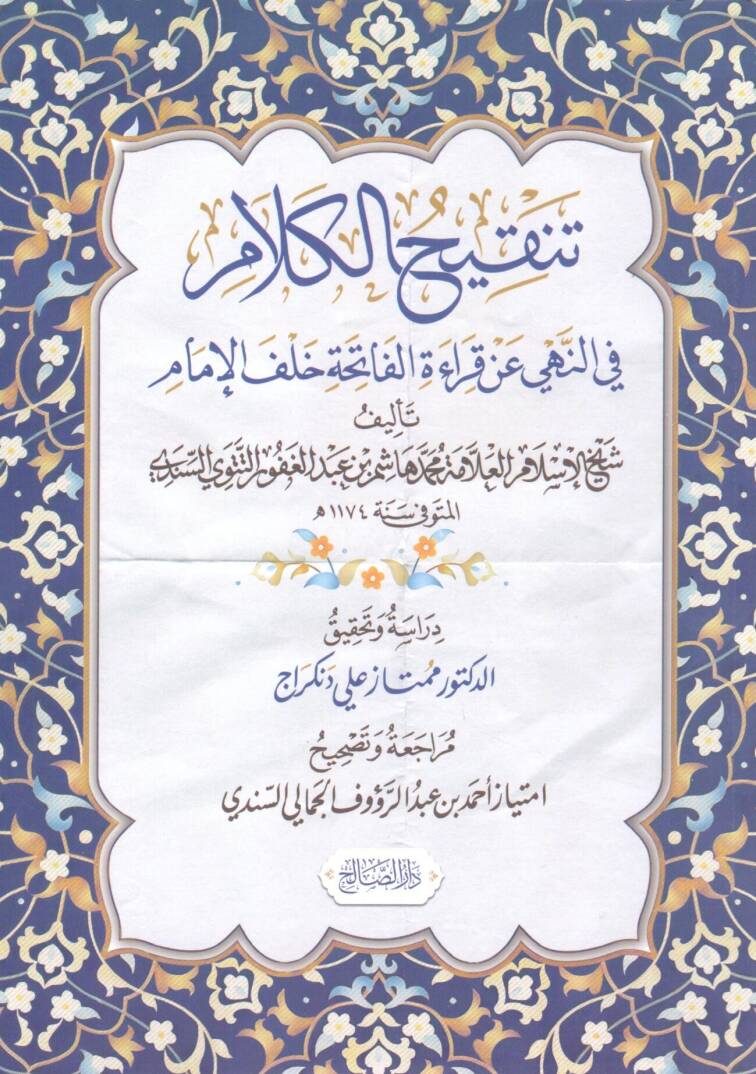 تنقيح الكلام
في النَّهْي عَنْ قِرَاءَةِ الفَاتِحَةِ خَلْفَ الإِمَامِ
تَأليفُ
شَيْخ الإسْلَام العَلَّامَة مُحمَّد هَاشِم بْن عَبْد الغَفُور التَّتوي السِّندي
المتوفى سنة ١١٧٤ھ
دِرَاسَةُ وَتَحقِيقُ
الدكتور مُمتَاز علي دَنكراج
مُرَاجَعَةُ وَتَصْحِيحُ
امتياز أحمد بن عبد الرَّؤوف الجمالي السِّندي
دَارُ الصَّالِح